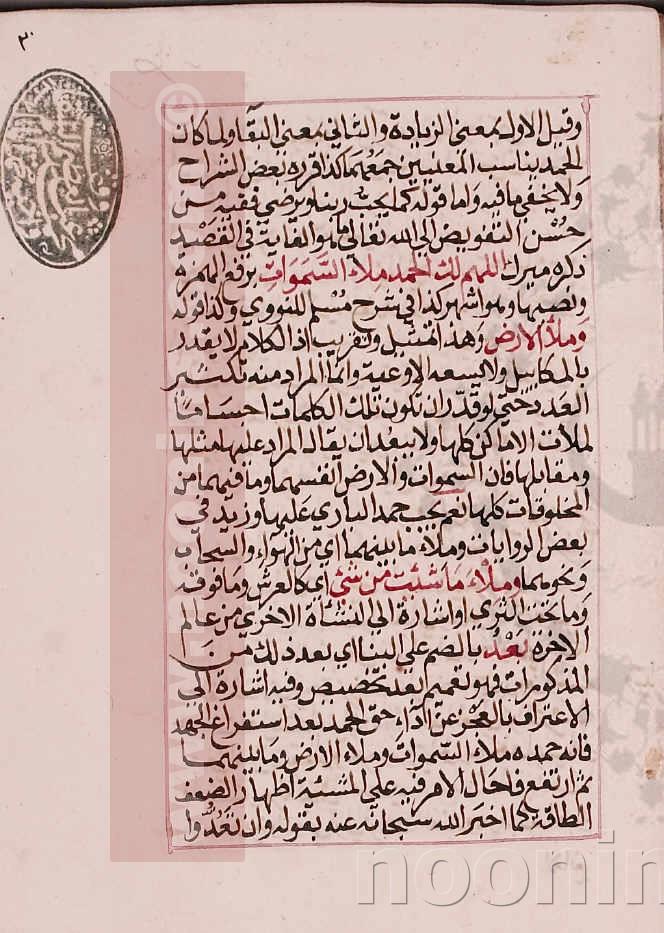 ٣٠
وقيل الاول بمعنى الزيادة والثاني بمعنى البقا ولما كان
الحمد يناسب المعنيين جمعهما كذا قرره بعض الشراح
ولا يخفى ما فيه واما قوله كما يحب ربنا ويرضى ففيه من
حُسْن التفويض الى الله تعالى ما هو الغاية في القصد
ذكره ميرك اللهم لك الحمد ملاء السَّمَوَاتِ برفع الهمزة
ونصبها وهو اشهر كذا في شرح مُسْلم للنووي وكذا قوله
وَملأ الارض وهذا تمثيل وتقريب اذ الكلام لا يقدر
بالمكاييل ولا يسعه الاوعية وانما المراد منه تكثير
العدد حتى لو قدّر ان تكون تلك الكلمات احسَامًا
لملأت الاماكن كلها ولا يبعد ان يقال المراد عليها مثلها
ومقابلها فان السموات والارض انفسهما وما فيهما من
المخلوقات كلها نعم يجب حمد الباري عَليها وزيد في
بعض الروايات وملاء ما بينهما اي من الهوآء والسحاب
ونحوهما وملْاء مَا شئت من شئ اي كالعرش وما فوقه
وما تحت الثرى او اشارة الى النشأة الاخرى من عالم
الاخرة بَعْدُ بالضم على البنا اي بعد ذلك من
المذكورات فهو تعميم بعد تخصيص وفيه اشارة الى
الاعتراف بالعجز عن ادآء حق الحمد بعد استفراغ الجهد
فانه حمده ملاء السّموات وملاء الارض وما بينهما
ثم ارتفع فاحال الامر فيه على المشئة اظهار الضعف
الطاقة كما اخبر الله سبحانه عنه بقوله وان تَعُدُّوا
noonin